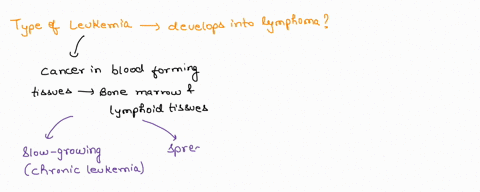 Type of Leukemia → develops into lymphoma?
Cancer in blood forming
tissues → Bone marrow &
lymphoid tissues
Slow-growing
(chronic leukemia)
spre